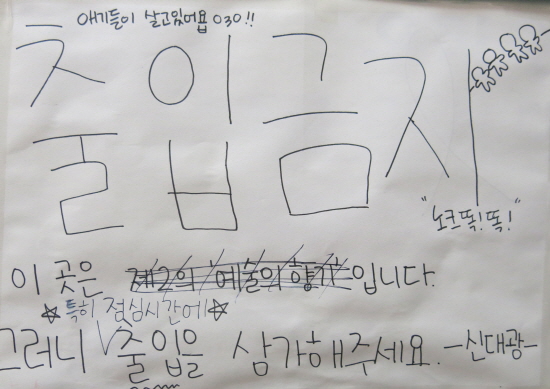 애기들이 살고있어욥 ㅇ3ㅇ!!
출입금지
"노크똑!똑!"
이 곳은 제2의 예술의향기 입니다.
☆특히 점심시간에!☆
그러니 출입을 삼가해주세요. -신대광-